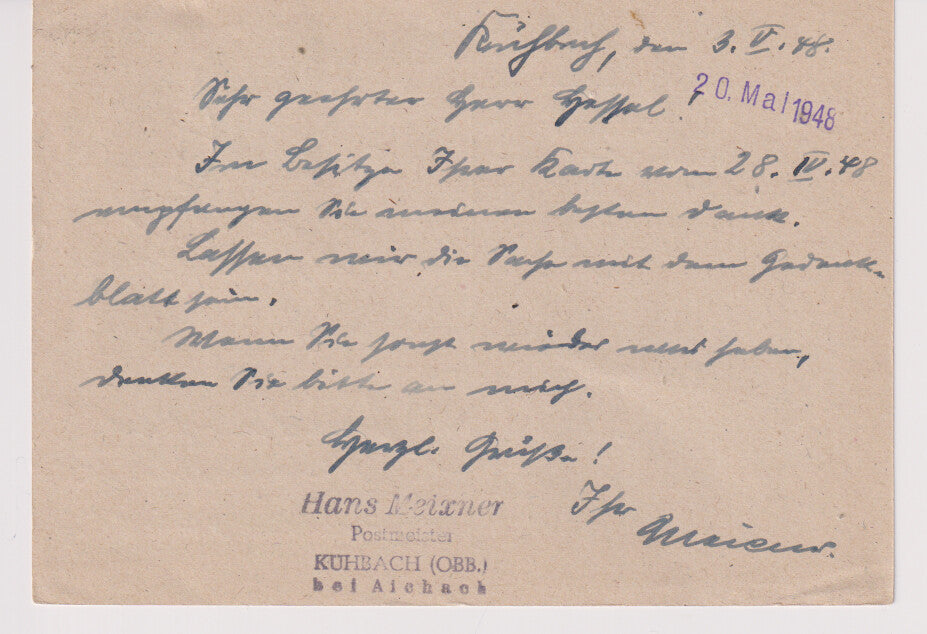 Kühbach, den 3. V. 48.
20. Mai 1948
Sehr geehrter Herr Hessel!
Im Besitze Ihrer Karte vom 28. IV. 48
empfangen Sie meinen besten Dank.
Lassen wir die Sache mit dem Gedenk-
blatt sein.
Wenn Sie sonst wieder was haben,
denken Sie bitte an mich.
Herzl. Grüße!
Ihr
Meixner.
Hans Meixner
Postmeister
KÜHBACH (OBB.)
bei Aichach